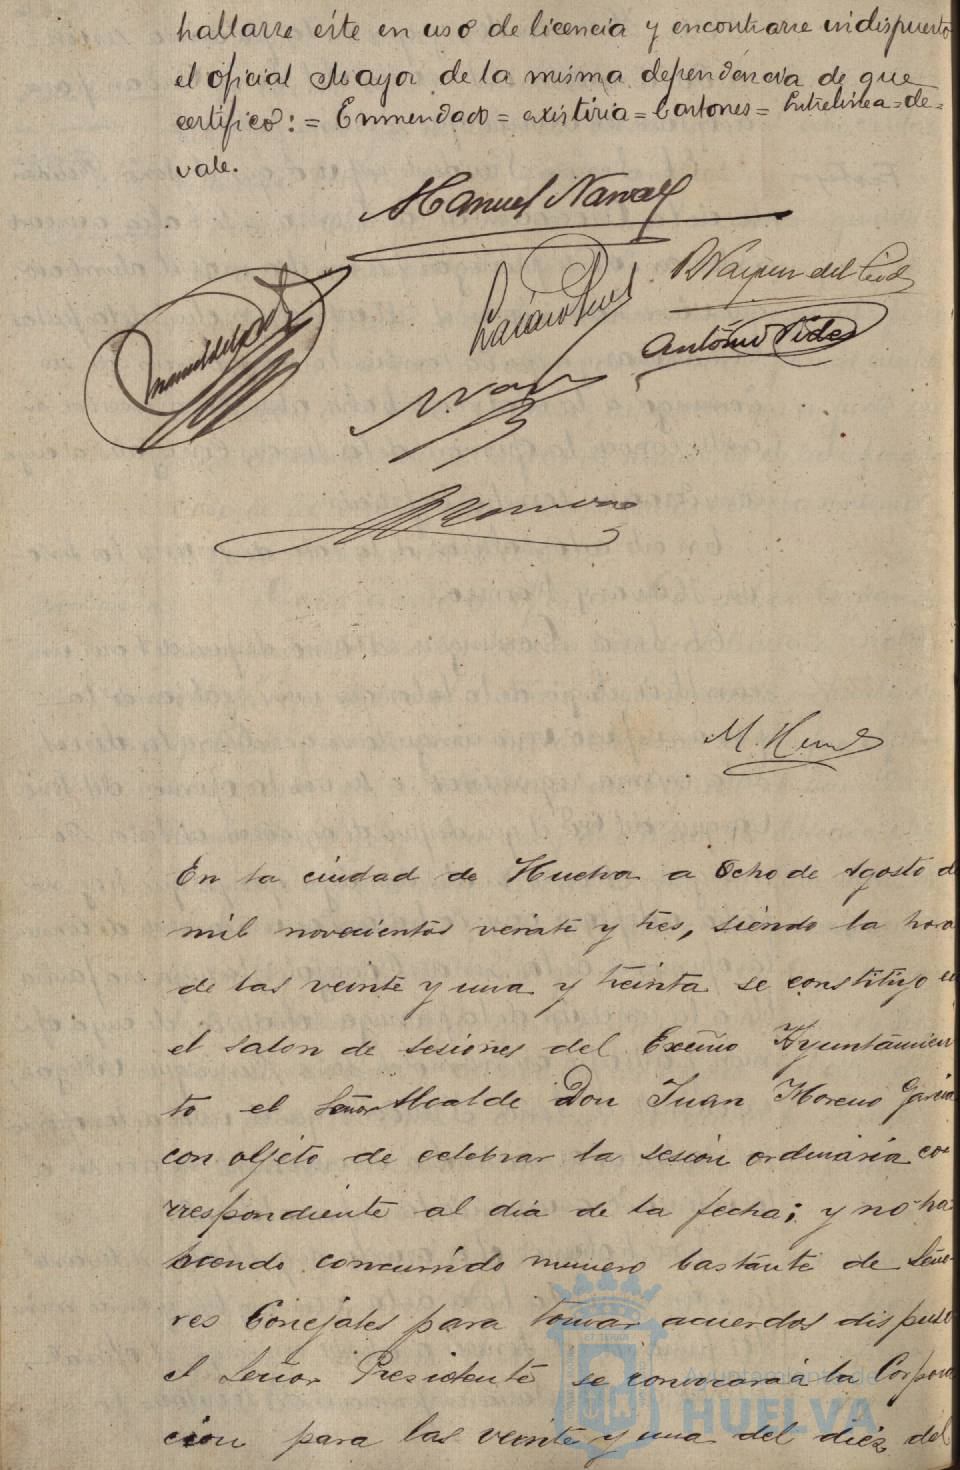 hallarse éste en uso de licencia y encontrarse indispuesto
el oficial Mayor de la misma dependencia de que
certifico: = Enmendado = existiria = Cartones = Entrelinea = de =
vale.
Manuel Narvaez
R Vazquez del Cid
Antonio Vides
En la ciudad de Huelva a Ocho de Agosto de
mil novecientos veinte y tres, siendo la hora
de las veinte y una y treinta se constituyó en
el salon de sesiones del Excmo Ayuntamien
to el Señor Alcalde Don Juan Moreno Garcia
con objeto de celebrar la sesión ordinaria co-
rrespondiente al dia de la fecha; y no ha
biendo concurrido numero bastante de Seño-
res Concejales para tomar acuerdos dispuso
el Señor Presidente se convocará a la Corpora
ción para las veinte y una del diez del
Ayuntamiento de
HUELVA